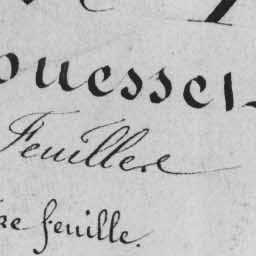 ouessel
Feuillere
re feuille.